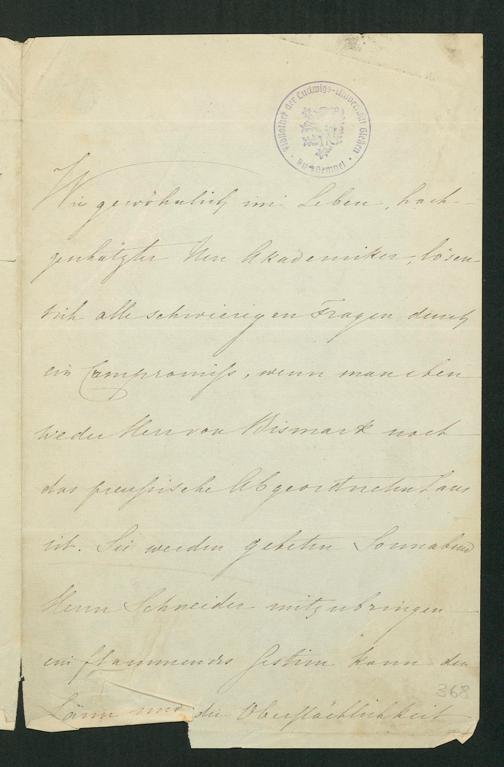 Bibliothek der Ludwigs-Universität Gießen
Wie gewöhnlich im Leben, hoch-
geschätzter Herr Akademiker, lösen
sich alle schwierigen Fragen durch
ein Compromiss, wenn man eben
weder Herr von Bismark noch
das preussische Abgeordnetenhaus
ist. Sie werden gebeten Sonnabend
Herrn Schneider mitzubringen
ein flammendes Gestirn kann den
Lärm und die Oberflächlichkeit
368